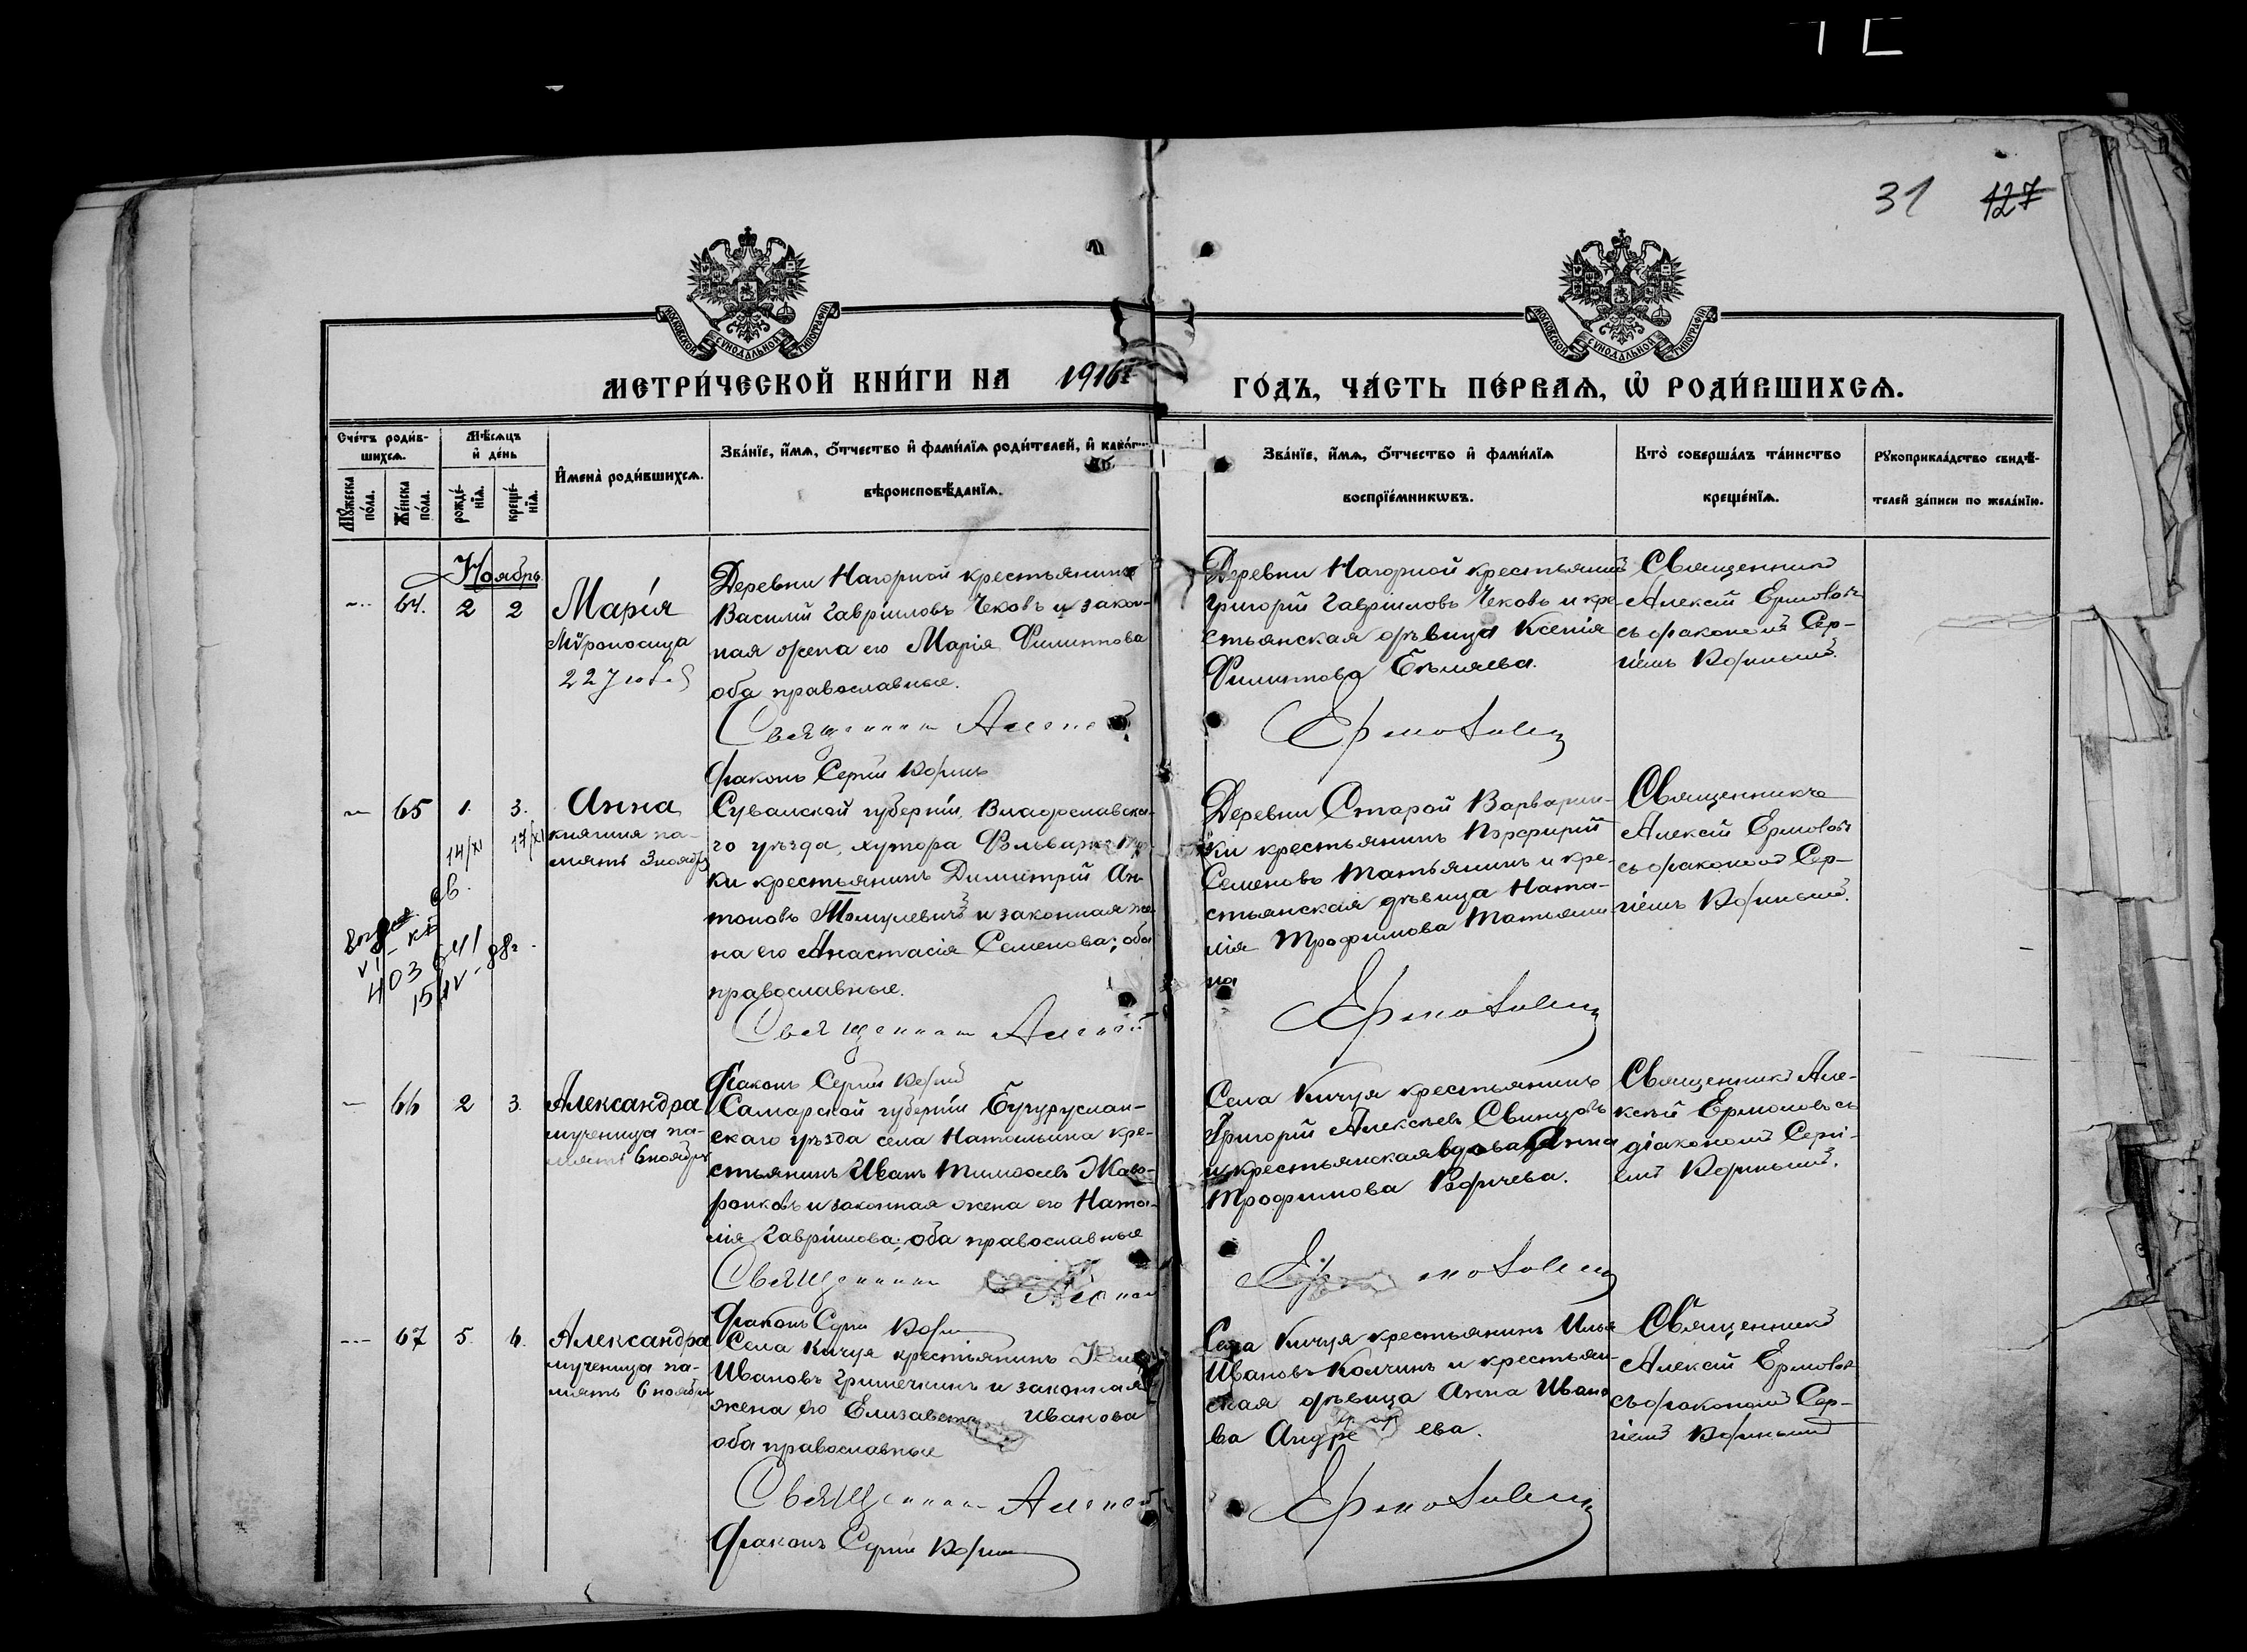 31 127
МОСКОВСКОЙ СѴНОДАЛЬНОЙ ТИПОГРАФІИ
МОСКОВСКОЙ СѴНОДАЛЬНОЙ ТИПОГРАФІИ
МЕТРИ́ЧЕСКОЙ КНИ́ГИ НА 1916 г
ГО́ДЪ, ЧА́СТЬ ПЕ́РВАѦ, Ѡ҆ РОДИ́ВШИХСѦ.
Сче́тъ роди́в-
шихсѧ.
Мꙋ́жеска
по́ла.
Же́нска
по́ла.
Мѣ́сѧцъ
и҆ де́нь
рожде́-
нїѧ.
креще́-
нїѧ.
И҆мена̀ роди́вшихсѧ.
Зва́нїе, и҆́мѧ, ѻ҆́тчество и҆ фами́лїѧ роди́телей, и҆ како́гѡ
вѣроисповѣ́данїѧ.
Зва́нїе, и҆́мѧ, ѻ҆́тчество и҆ фами́лїѧ
воспрїе́мникѡвъ.
Кто̀ соверша́лъ та́инство
креще́нїѧ.
Рꙋкоприкла́дство свидѣ́-
телей за́писи по жела́нїю.
Ноябрь
64. 2 2
Марія
Мѵроносица
22 Іюля
Деревни Нагорной крестьянинъ
Василій Гавріиловъ Чековъ и закон-
ная жена его Марія Филиппова
оба православные.
Священникъ Алексій
Діаконъ Сергій Коринъ
Деревни Нагорной крестьянинъ
Григорій Гавріиловъ Чековъ и кре-
стьянская дѣвица Ксенія
Филиппова Бѣляева.
Ермоловъ
Священникъ
Алексій Ермоловъ
съ діакономъ Сер-
гіемъ Коринымъ.
65 1. 3.
14/XI 17/XI
Анна
княгиня па-
мять 3 ноября
св.
VI-КБ
403641
15/IV-88г.
Сувалской губерніи, Владославска-
го уѣзда, хутора Фольварка
ки крестьянинъ Димитрій Ан-
тоновъ Момулевичъ и законная же-
на его Анастасія Семенова; оба
православные.
Священникъ Алексій
Діаконъ Сергій Коринъ
Деревни Старой Варварин-
ки крестьянинъ Порфирій
Семеновъ Татьянинъ и кре-
стьянская дѣвица Ната-
лія Трофимова Татьяни-
на
Ермоловъ
Священникъ
Алексій Ермоловъ
съ діакономъ Сер-
гіемъ Коринымъ.
66 2 3.
Александра
мученица па-
мять 6 ноября
Самарской губерніи Бугуруслан-
скаго уѣзда села Натальина кре-
стьянинъ Иванъ Тимоѳеевъ Жаво-
ронковъ и законная жена его Ната-
лія Гавріилова; оба православные
Священникъ Алексій
Діаконъ Сергій Коринъ
Села Кичуя крестьянинъ
Григорій Алексѣевъ Свинцовъ
и крестьянская вдова Анна
Трофимова Корчева.
Ермоловъ
Священникъ Але-
ксѣй Ермоловъ съ
діакономъ Сергі-
емъ Коринымъ.
67 5. 6.
Александра
мученица па-
мять 6 ноября
Села Кичуя крестьянинъ
Ивановъ Гришечкинъ и законная
жена его Елизавета Иванова
оба православные
Священникъ Алексій
Діаконъ Сергій Коринъ
Села Кичуя крестьянинъ Илья
Ивановъ Колчинъ и крестьян-
ская дѣвица Анна Ивано-
ва Андреева.
Ермоловъ
Священникъ
Алексій Ермоловъ
съ діакономъ Сер-
гіемъ Коринымъ